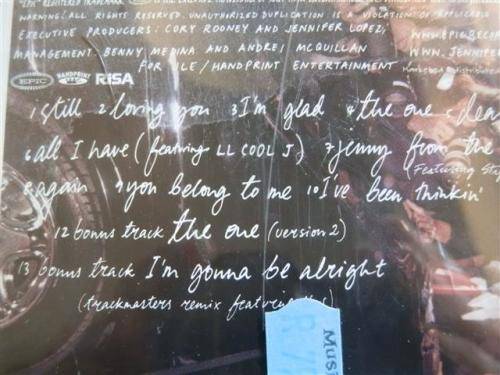 "EPIC" REGISTERED TRADEMARK.
WARNING: ALL RIGHTS RESERVED. UNAUTHORIZED DUPLICATION IS A VIOLATION OF APPLICABLE
EXECUTIVE PRODUCERS: CORY ROONEY AND JENNIFER LOPEZ,
MANAGEMENT: BENNY MEDINA AND ANDREI MCQUILLAN
FOR ILE/HANDPRINT ENTERTAINMENT
WWW.EPICRECOR
WWW.JENNIFER
EPIC HANDPRINT RISA
1 still 2 loving you 3 I'm glad 4 the one 5 dear
6 all I have (featuring LL COOL J) 7 jenny from the
(Featuring Sty
8 again 9 you belong to me 10 I've been thinkin'
12 bonus track the one (version 2)
13 bonus track I'm gonna be alright
(trackmasters remix featuring
Mus